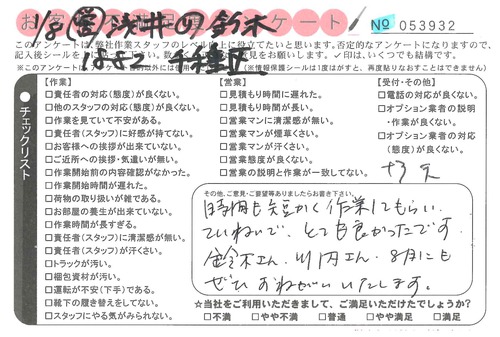 お客 ケート
№ 053932
1/8 営 浅井 鈴木
千種区
このアンケートは、弊社作業スタッフのレベル 上に役立てたいと思います。否定的なアンケートになりますので、
記入後シールを をお願いします。✓印は、いくつでも結構です。
(※情報保護シールは1度はがすと、再度貼りなおすことはできません)
チェックリスト
【作業】
□責任者の対応(態度)が良くない。
□他のスタッフの対応(態度)が良くない。
□作業を見ていて不安がある。
□責任者(スタッフ)に好感が持てない。
□お客様への挨拶が出来ていない。
□ご近所への挨拶・気遣いが無い。
□作業開始前の内容確認がなかった。
□作業開始時間が遅れた。
□荷物の取り扱いが雑である。
□お部屋の養生が出来ていない。
□作業時間が長すぎる。
□責任者(スタッフ)に清潔感が無い。
□責任者(スタッフ)が汗くさい。
□トラックが汚い。
□梱包資材が汚い。
□運転が不安(下手)である。
□靴下の履き替えをしてない。
□スタッフにやる気がみられない。
【営業】
□見積もり時間に遅れた。
□見積もり時間が長い。
□営業マンに清潔感が無い。
□営業マンが煙草くさい。
□営業マンが汗くさい。
□営業態度が良くない。
□営業の説明と作業が一致してない。
【受付・その他】
□電話の対応が良くない。
□オプション業者の説明
・作業が良くない。
□オプション業者の対応
(態度)が良くない。
その他、ご意見・ご要望等ありましたらお書き下さい。
時間も短かく作業してもらい、
ていねいで、とても良かったです。
鈴木さん、 さん、8月にも
ぜひおねがいいたします。
☆当社をご利用いただきまして、ご満足いただけたでしょうか?
□不満 □やや不満 □普通 □やや満足 □満足